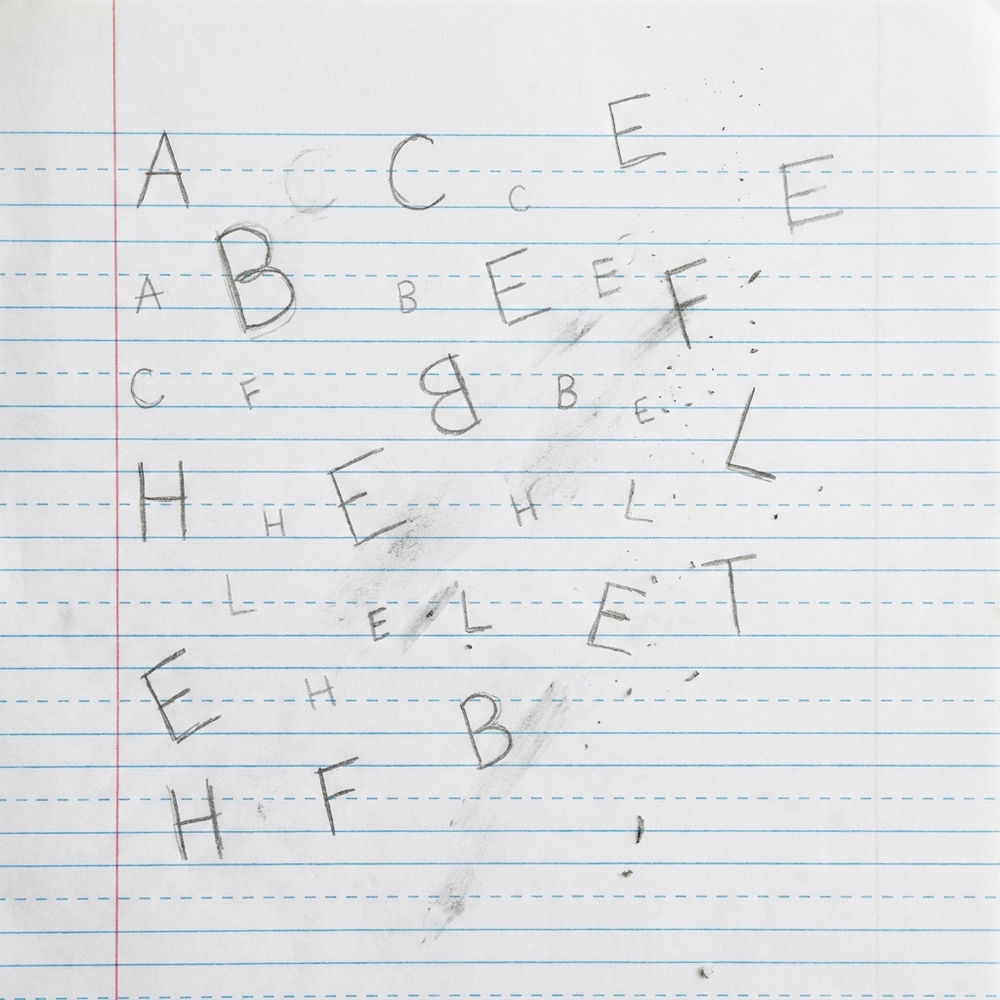 A C C C E E
A B B E E F
C F B B E L
H H E H L
L E L E T
E H B
H F